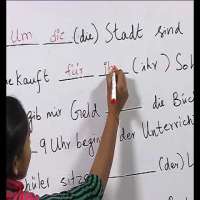 Um die (die) Stadt sind
kauft für ih (ihr) So
gib mir Geld ___ die Büc
9 Uhr begin der Unterricht
hüler sitze ___ (der) L